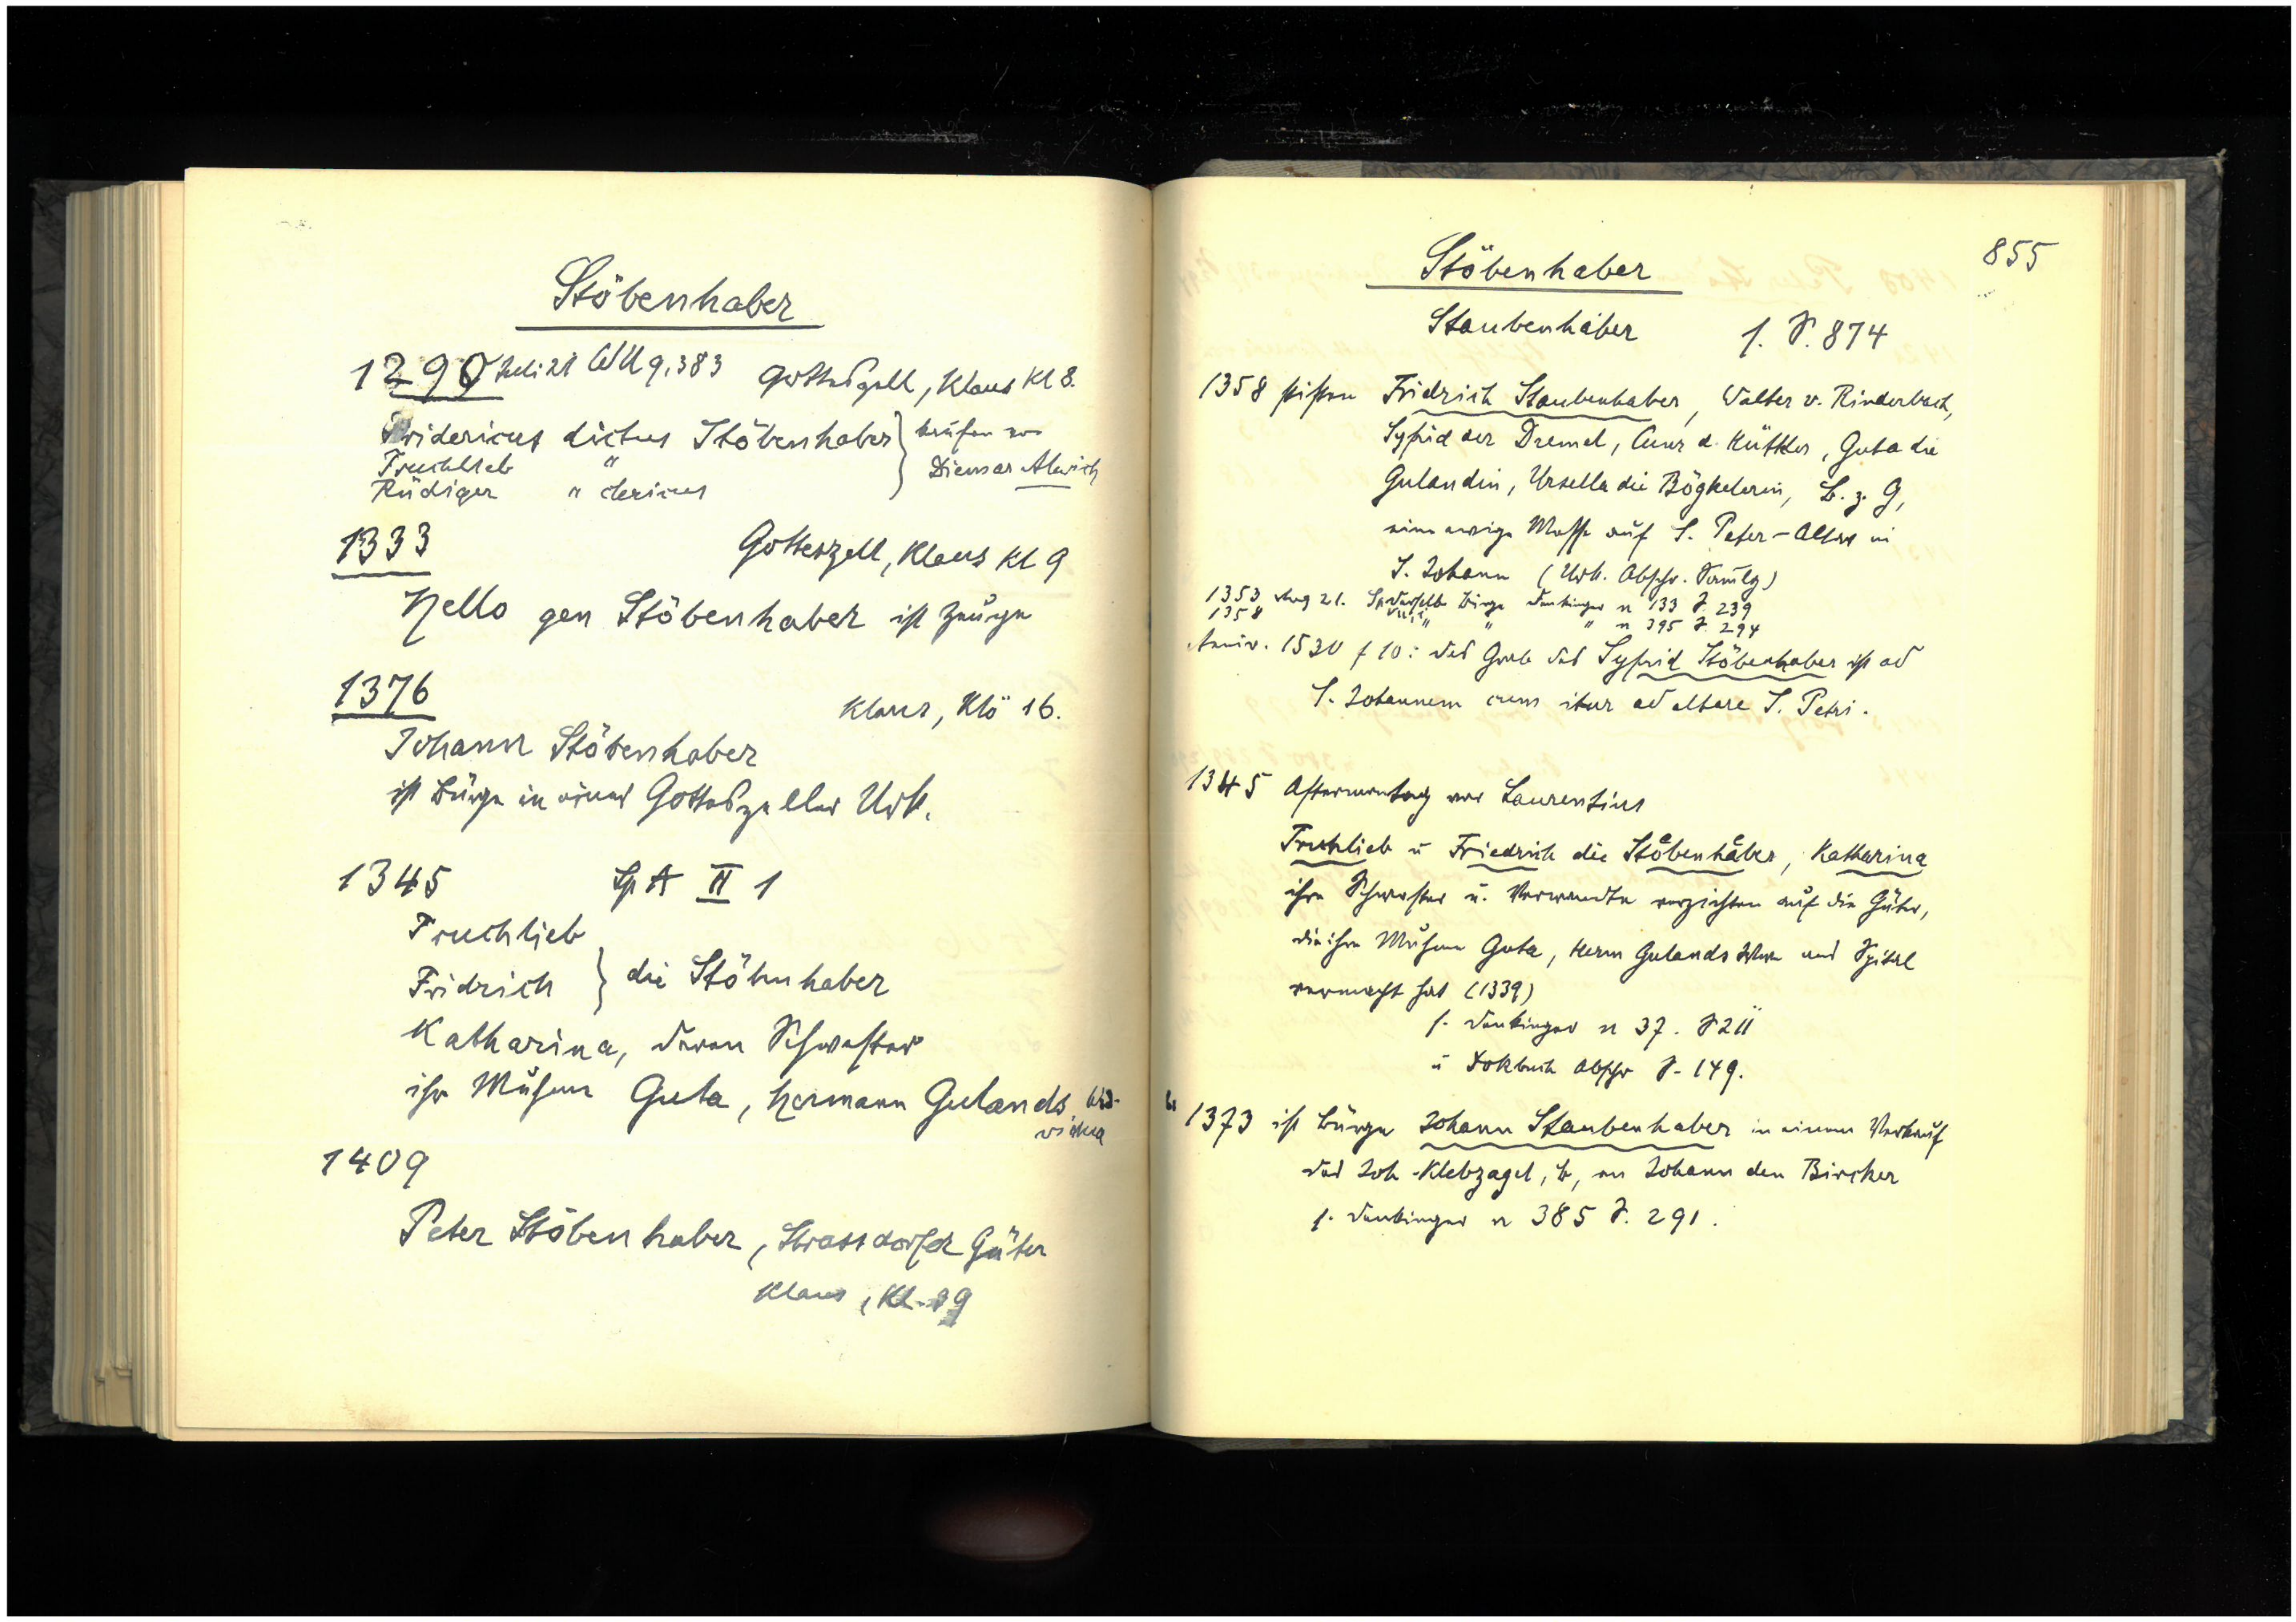 Stöbenhaber
1290 Juli 21 WU 9,383 Gotteszell, Klaus Kl 8.
Fridericus dictus Stöbenhaber } kaufen von
Fruchlieb " Diemar Alwich
Rüdiger " clericus
1333 Gotteszell, Klaus Kl 9
Nello gen Stöbenhaber ist Zeuge
1376 Klaus, Klö 16.
Johann Stöbenhaber
ist Bürge in einer Gotteszeller Urk.
1345 Sp A II 1
Fruchlieb
Fridrich } die Stöbenhaber
Katharina, deren Schwester
ihr Muhme Guta, Hermann Gulands
1409
Peter Stöbenhaber, Strassdorfer Güter
Klaus, Kl. 29
855
Stöbenhaber
Staubenhaber s. S. 874
1358 stiften Fridrich Staubenhaber, Walter v. Rinderbach,
Syfrid der Dremel, Cunr d. Küttler, Guta die
Gulandin, Ursella die Bögkelerin, B. z. G,
eine ewige Messe auf S. Peter-Altar in
S. Johann (Urk. Abschr. Samlg)
1353 Aug 21. derselbe Bürge Denkinger n 133 S. 239
1358 " " " n 395 S. 294
Anniv. 1530 f 10: das Grab des Syfrid Stöbenhaber ist ad
S. Johannem cum itur ad altare S. Petri.
1345 Aftermontag vor Laurentius
Fruhlieb u Friedrich die Stöbenhaber, Katharina
ihre Schwester u. Verwandte verzichten auf die Güter,
die ihre Muhme Guta, Herm Gulands Wwe and Spital
vermacht hat (1339)
s. Denkinger n 37. S 211
u Dokbuch Abschr S. 149.
1373 ist Bürge Johann Staubenhaber in einem Verkauf
des Joh. Klebzagel, B, an Johann den Bircker
s. Denkinger n 385 S. 291.